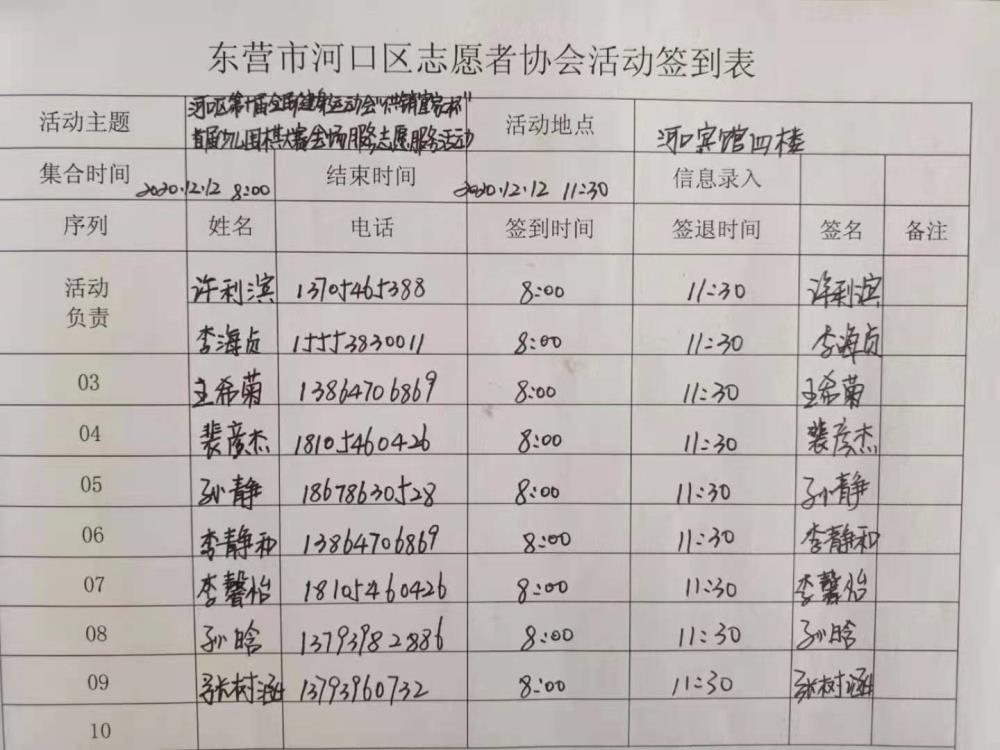 东营市河口区志愿者协会活动签到表
活动主题 河口区第十届全民健身运动会“供销宜家杯” 首届少儿围棋大赛会场服务志愿服务活动 活动地点 河口宾馆四楼
集合时间 2020.12.12 8:00 结束时间 2020.12.12 11:30 信息录入
序列 姓名 电话 签到时间 签退时间 签名 备注
活动负责 许利滨 13705465388 8:00 11:30 许利滨
李海贞 15553830011 8:00 11:30 李海贞
03 王希菊 13864706869 8:00 11:30 王希菊
04 裴彦杰 18105460426 8:00 11:30 裴彦杰
05 孙静 18678630528 8:00 11:30 孙静
06 李静和 13864706869 8:00 11:30 李静和
07 李馨怡 18105460426 8:00 11:30 李馨怡
08 孙晗 13793982886 8:00 11:30 孙晗
09 张树涵 13793960732 8:00 11:30 张树涵
10